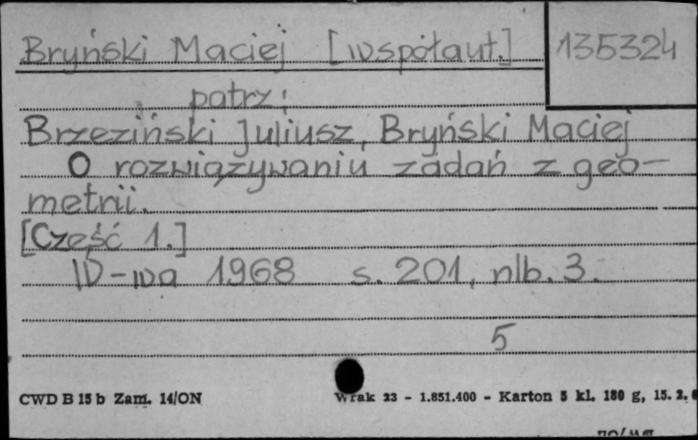 Bryński Maciej [współaut.] 135324
patrz:
Brzeziński Juliusz, Bryński Maciej
O rozwiązywaniu zadań z geo-
metrii.
[Część 1.]
W-wa 1968 s. 201, nlb. 3.
5
CWD B 15 b Zam. 14/ON Wrak 23 - 1.851.400 - Karton 5 kl. 180 g, 15. 2.